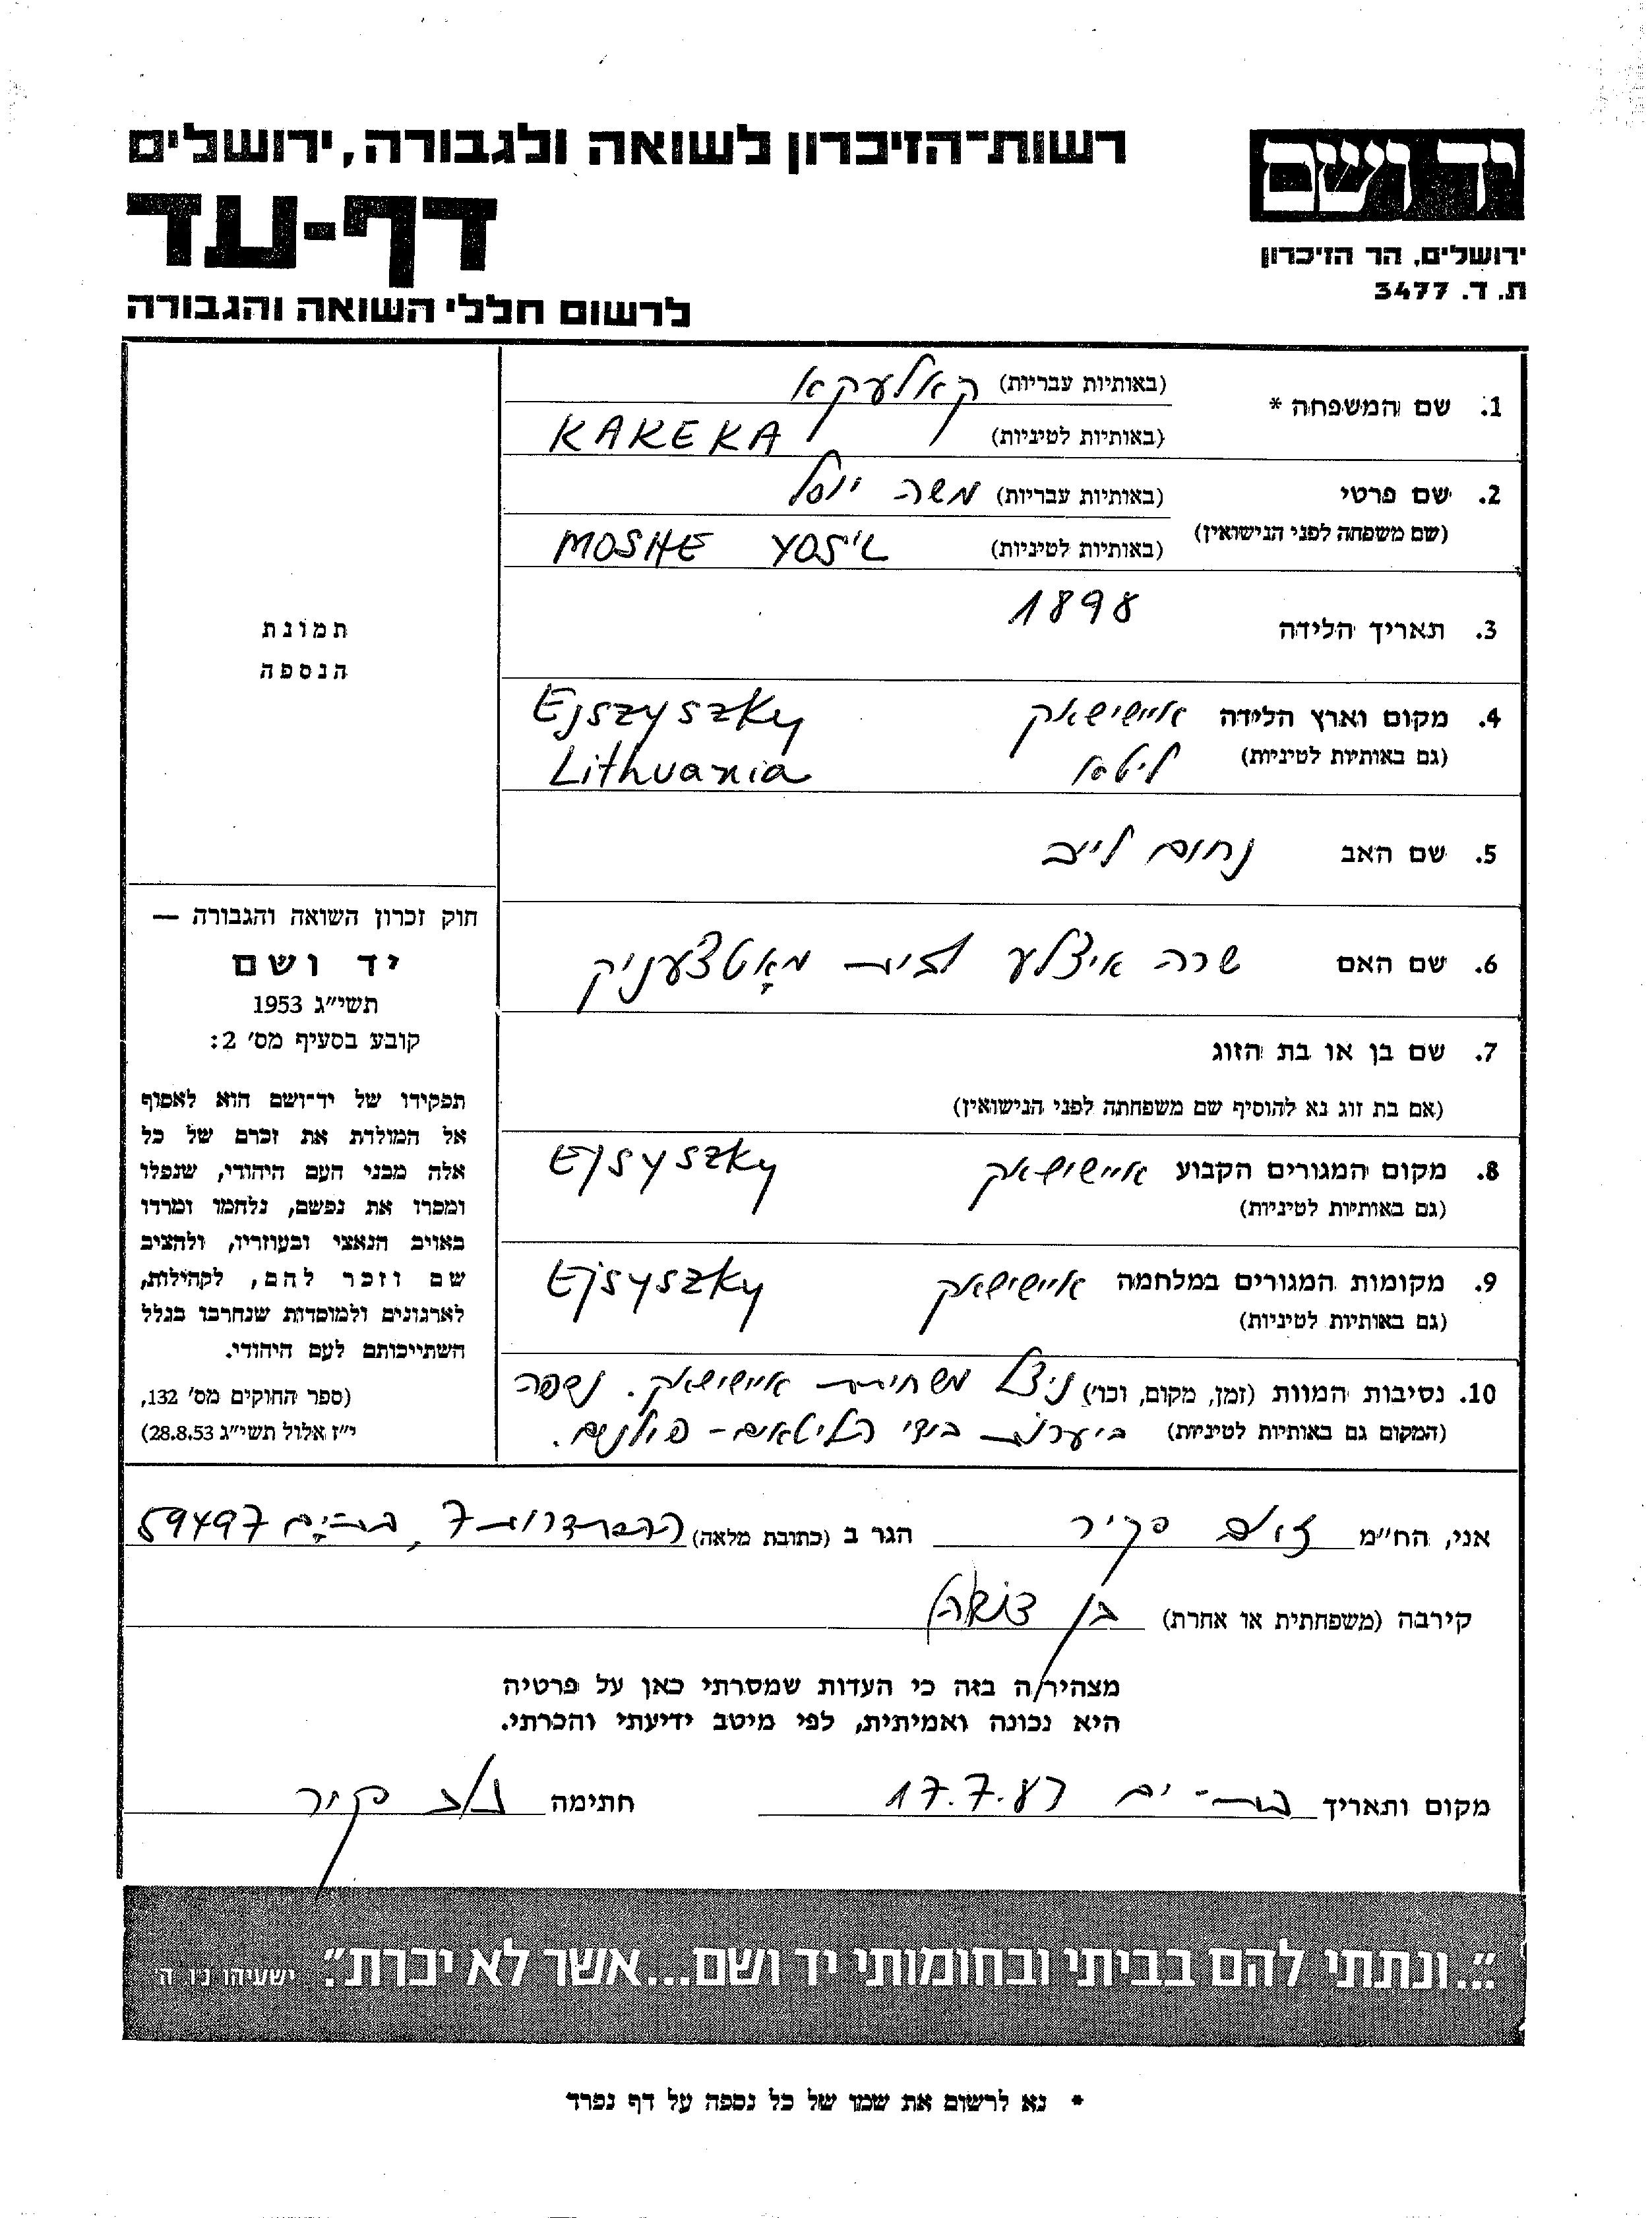 רשות־הזיכרון לשואה ולגבורה, ירושלים
דף-עד
לרשום חללי השואה והגבורה
יד ושם
ירושלים, הר הזיכרון
ת. ד. 3477
1. שם המשפחה * (באותיות עבריות) קאלעקא
(באותיות לטיניות) KAKEKA
2. שם פרטי (באותיות עבריות) משה יוסל
(שם משפחה לפני הנישואין) (באותיות לטיניות) MOSHE YOS'L
3. תאריך הלידה 1898
4. מקום וארץ הלידה אײשישאק Ejszyszky
(גם באותיות לטיניות) ליטא Lithuania
5. שם האב נחום לייב
6. שם האם שרה איצלע לבית מאָטצעניק
7. שם בן או בת הזוג
(אם בת זוג נא להוסיף שם משפחתה לפני הנישואין)
8. מקום המגורים הקבוע אײשישאק Ejsyszky
(גם באותיות לטיניות)
9. מקומות המגורים במלחמה אײשישאק Ejsyszky
(גם באותיות לטיניות)
10. נסיבות המוות (זמן, מקום, וכו') ניצל משחיטת אײשישאק. נספה
(המקום גם באותיות לטיניות) ביערות בידי הליטאים - פולנים.
תמונת
הנספה
חוק זכרון השואה והגבורה —
יד ושם
תשי"ג 1953
קובע בסעיף מס' 2:
תפקידו של יד־ושם הוא לאסוף
אל המולדת את זכרם של כל
אלה מבני העם היהודי, שנפלו
ומסרו את נפשם, נלחמו ומרדו
באויב הנאצי ובעוזריו, ולהציב
שם וזכר להם, לקהילות,
לארגונים ולמוסדות שנחרבו בגלל
השתייכותם לעם היהודי.
(ספר החוקים מס' 132,
י"ז אלול תשי"ג 28.8.53)
אני, הח"מ הגר ב (כתובת מלאה) ההסתדרות 7, בת-ים 59497
קירבה (משפחתית או אחרת) בן
מצהיר/ה בזה כי העדות שמסרתי כאן על פרטיה
היא נכונה ואמיתית, לפי מיטב ידיעתי והכרתי.
מקום ותאריך בת-ים 17.7.87 חתימה
"...ונתתי להם בביתי ובחומותי יד ושם...אשר לא יכרת". ישעיהו נ"ו, ה'
* נא לרשום את שמו של כל נספה על דף נפרד